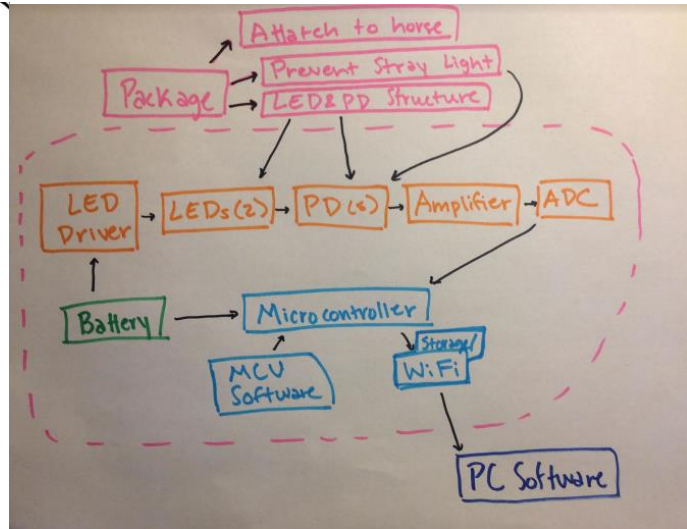 Attatch to horse
Prevent Stray Light
Package
LED&PD Structure
LED
Driver
LEDs(2)
PD(s)
Amplifier
ADC
Battery
Microcontroller
MCU
Software
Storage/
WiFi
PC Software